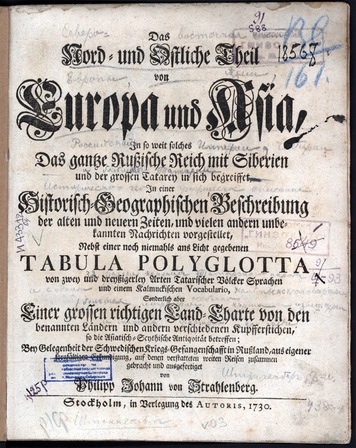 Das
Nord- und Ostliche Theil
von
Europa und Asia,
In so weit solches
Das gantze Rußische Reich mit Siberien
und der grossen Tatarey in sich begreiffet,
In einer
Historisch-Geographischen Beschreibung
der alten und neuern Zeiten, und vielen andern unbe-
kannten Nachrichten vorgestellet,
Nebst einer noch niemahls ans Licht gegebenen
TABULA POLYGLOTTA
von zwey und dreyßigerley Arten Tatarischer Völcker Sprachen
und einem Kalmuckischen Vocabulario,
Sonderlich aber
Einer grossen richtigen Land-Charte von den
benannten Ländern und andern verschiedenen Kupfferstichen,
so die Asiatisch-Scythische Antiquität betreffen;
Bey Gelegenheit der Schwedischen Kriegs-Gefangenschafft in Rußland, aus eigener
sorgfältigen Erkundigung, auf denen verstatteten weiten Reisen zusammen
gebracht und ausgefertiget
von
Philipp Johann von Strahlenberg.
Stockholm, in Verlegung des AUTORIS, 1730.
18567